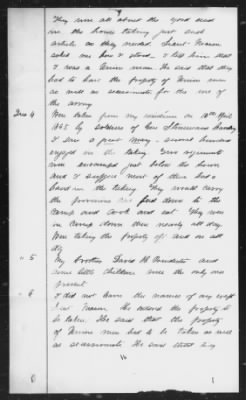 They were all about the yard and
in the house taking just such
articles as they needed. Lieut. Mason
asked me how I stood. I told him that
I was a Union man. He said that they
had to have the property of Union men
as well as secessionists for the use of
the army
Ques 4
Were taken from my residence on 12th April
1865 by soldiers of Gen Stoneman's Cavalry
I saw a great many. Several hundred
engaged in the taking. Two regiments
were encamped just below the house
and I suppose most of them had a
hand in the taking. They would carry
the provisions and food down to the
camp and cook and eat. They were
in camp down there nearly all day
Were taking the property off and on all
day
" 5
My brother David H.
and
some little children were the only ones
present
" 6
I did not know the names of any except
Lieut Mason. He ordered the property to
be taken. He said that the property
of Union men had to be taken as well
as secessionists. He said that